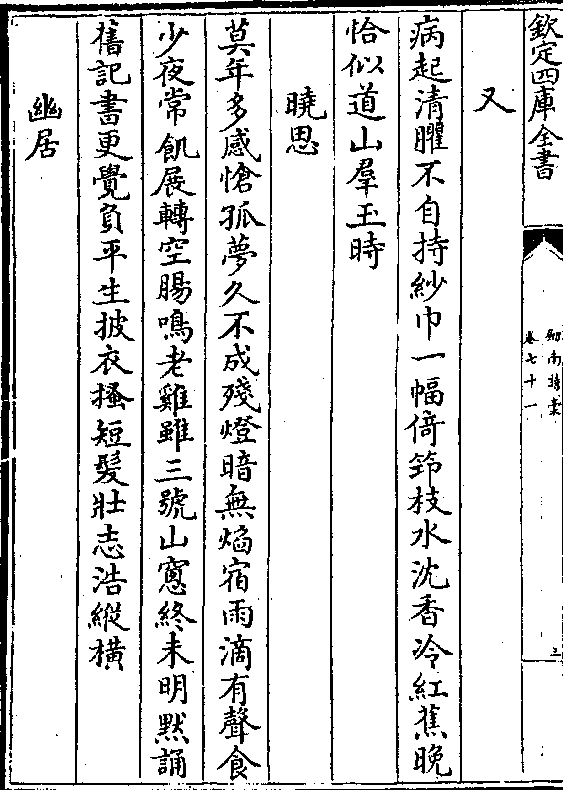 欽定四庫全書
劍南詩稾
卷七十一
三
又
病起清臞不自持紗巾一幅倚筇枝水沈香冷紅蕉晚
恰似道山羣玉時
曉思
莫年多感愴孤夢久不成殘燈暗無焰宿雨滴有聲食
少夜常飢展轉空腸鳴老雞雖三號山窻終未明默誦
舊記書更覺負平生披衣搔短髮壯志浩縱橫
幽居